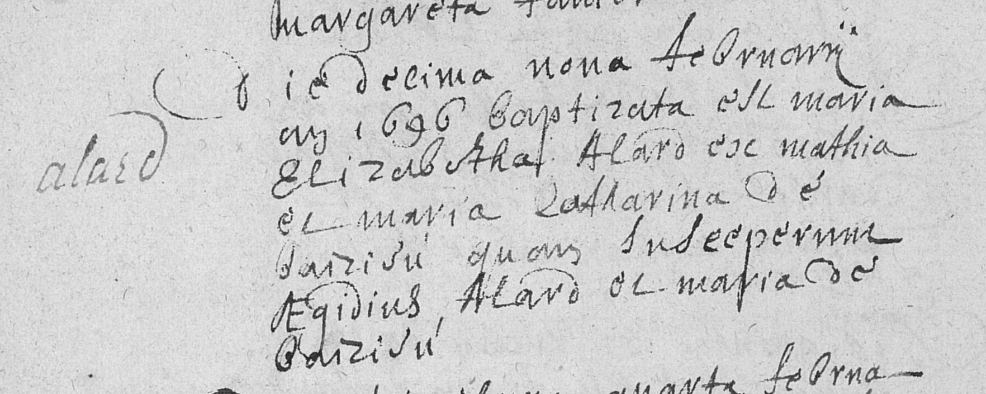 margareta
die decima nona februarij
an 1696 baptizata est maria
alard
Elizabetha Alard ex mathia
et maria Catharina de
quam susceperunt
Ægidius Alard et maria de
quarta februa